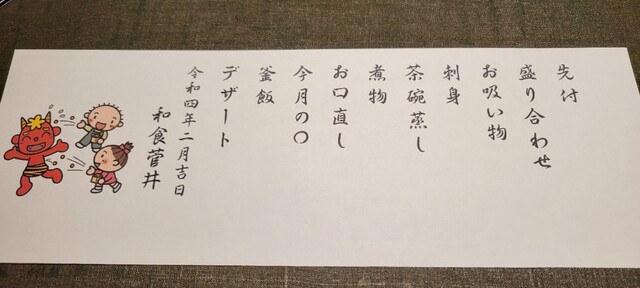 先付
盛り合わせ
お吸い物
刺身
茶碗蒸し
煮物
お口直し
今月の〇
釜飯
デザート
令和四年二月吉日
和食菅井